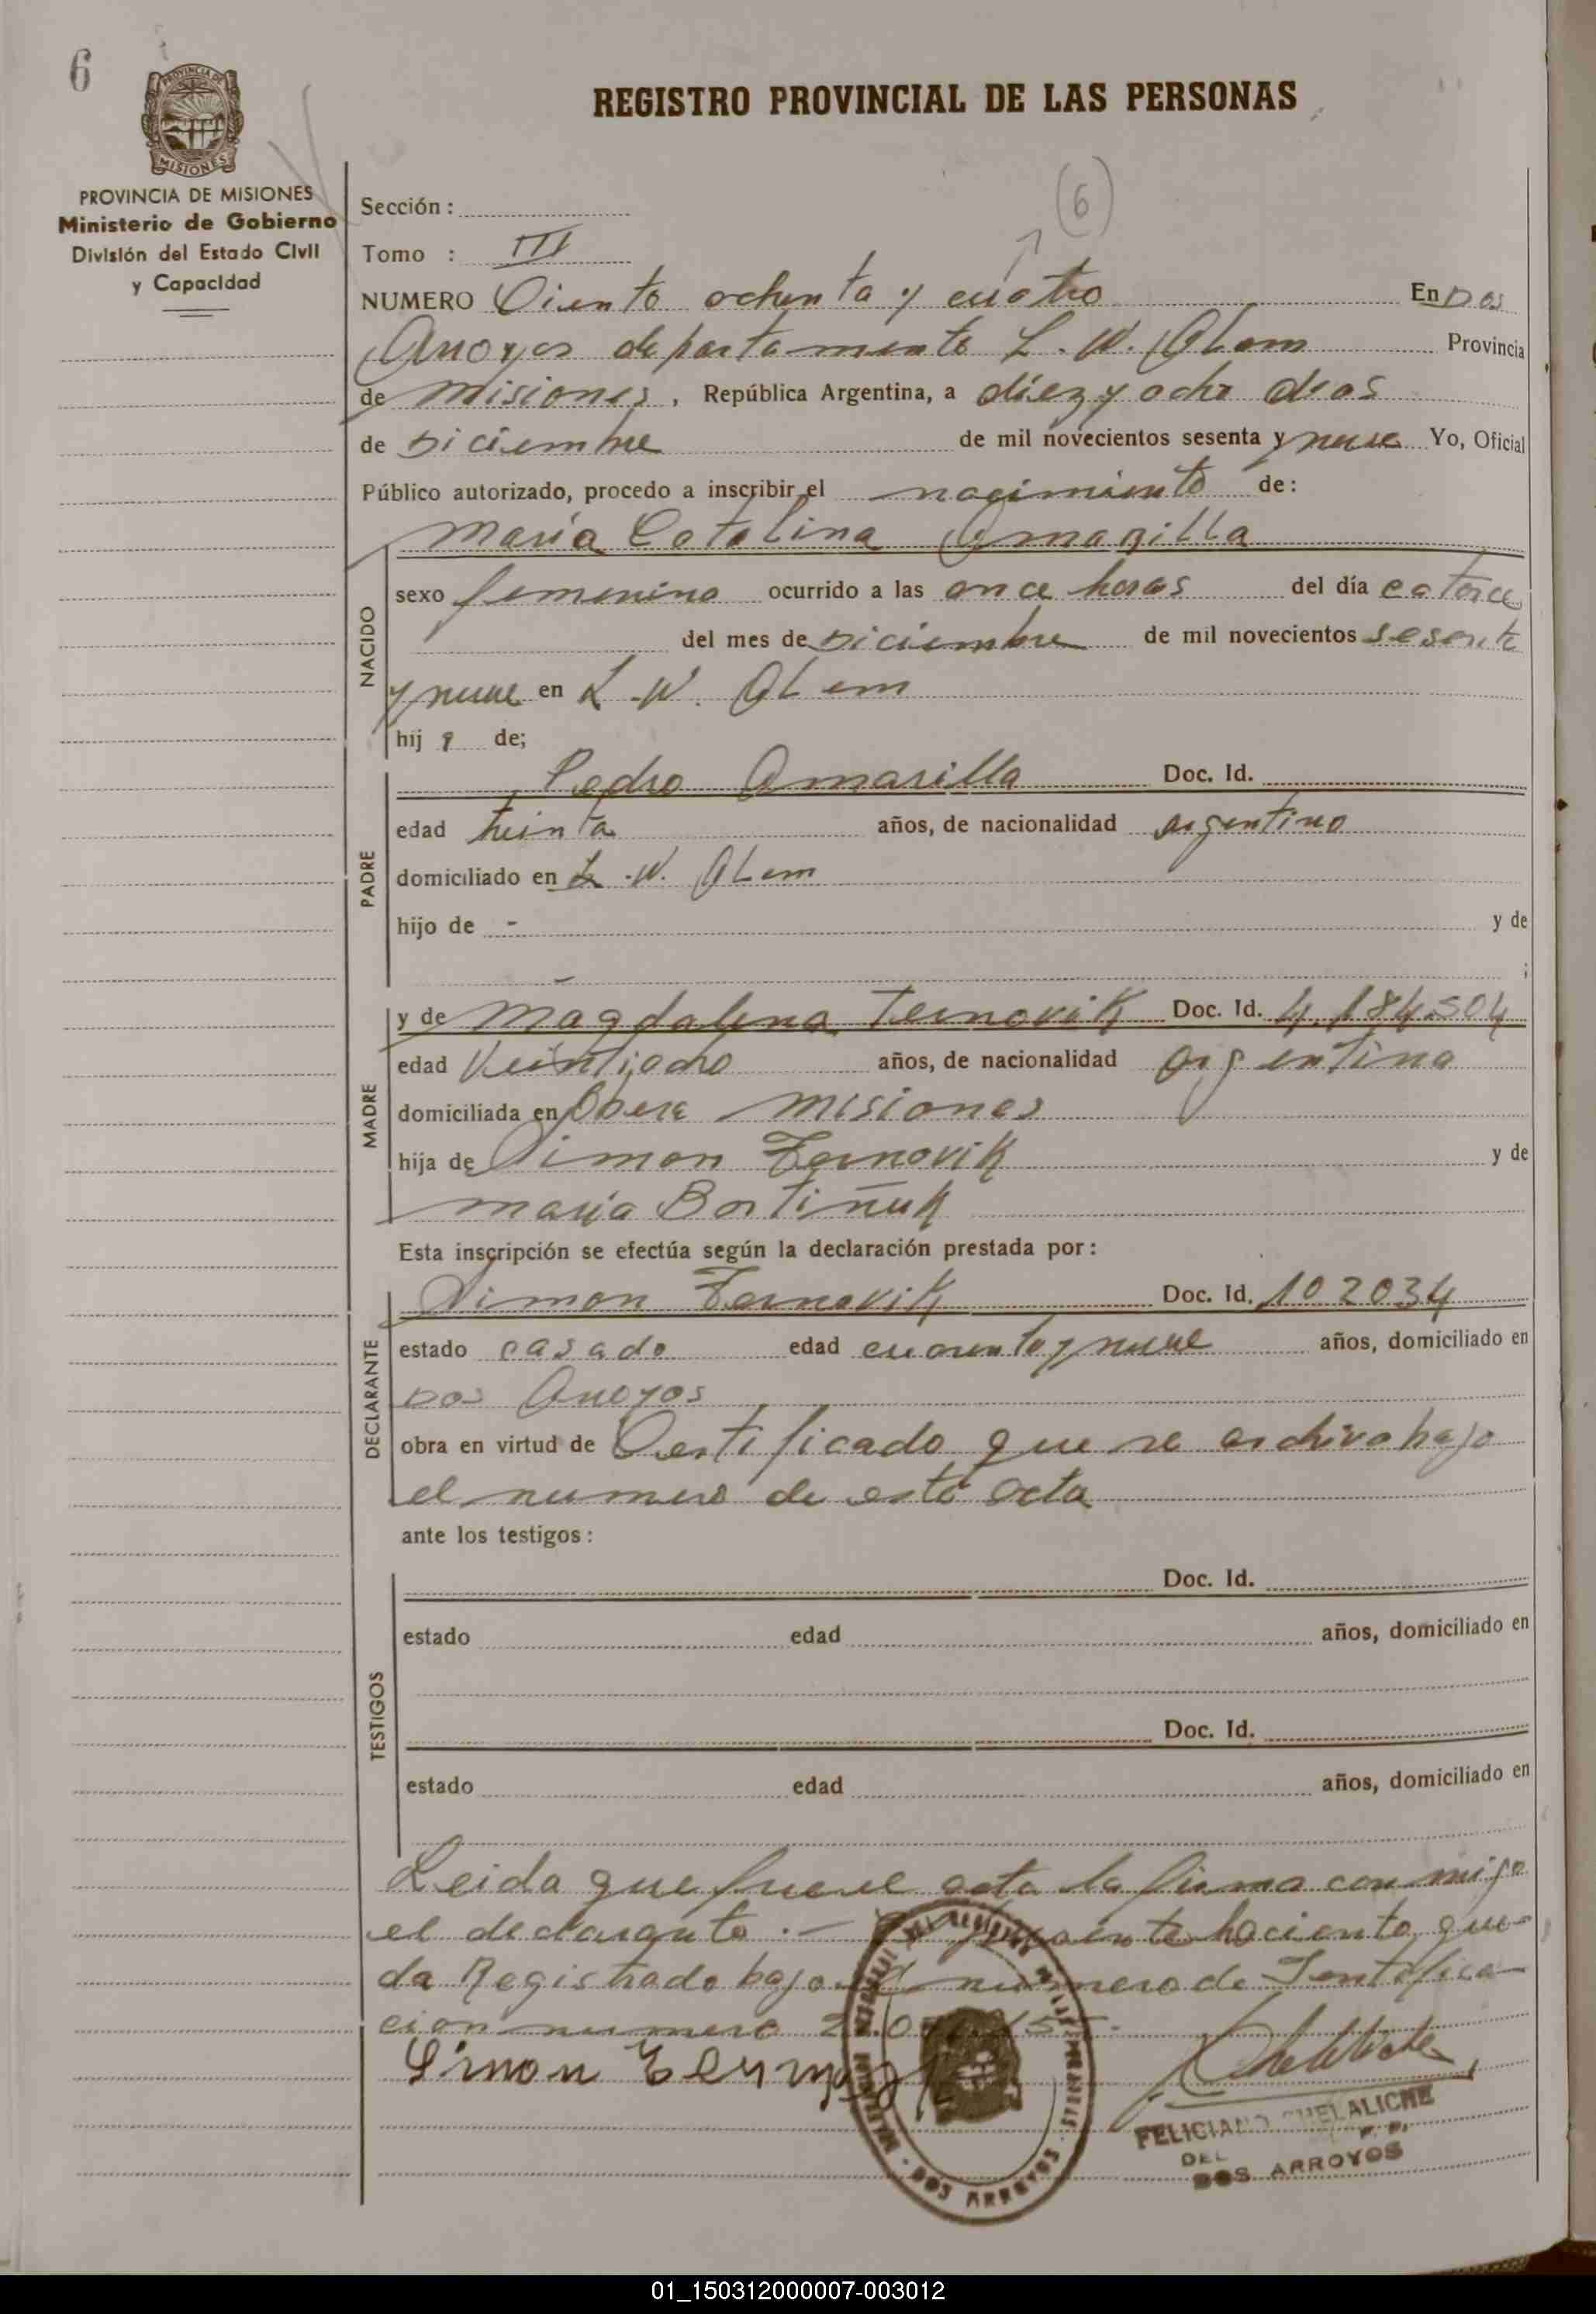 6
PROVINCIA DE
MISIONES
REGISTRO PROVINCIAL DE LAS PERSONAS
PROVINCIA DE MISIONES
Ministerio de Gobierno
División del Estado Civil
y Capacidad
(6)
Sección :
Tomo : III
NUMERO Ciento ochenta y cuatro En Dos
Arroyos departamento L. N. Alem Provincia
de Misiones, República Argentina, a diez y ocho dias
de Diciembre de mil novecientos sesenta y nueve Yo, Oficial
Público autorizado, procedo a inscribir el nacimiento de:
NACIDO
Maria Catalina Amarilla
sexo femenino ocurrido a las once horas del día catorce
del mes de Diciembre de mil novecientos sesenta
y nueve en L. N. Alem
hija de;
PADRE
Pedro Amarilla Doc. Id.
edad treinta años, de nacionalidad argentino
domiciliado en L. N. Alem
hijo de - y de
- ;
MADRE
y de Magdalena Ternovik Doc. Id. 4.184.504
edad Veintiocho años, de nacionalidad argentina
domiciliada en Obera Misiones
hija de Simon Ternovik y de
Maria Bortiñuk
Esta inscripción se efectúa según la declaración prestada por:
DECLARANTE
Simon Ternovik Doc. Id. 102034
estado casado edad cuarenta y nueve años, domiciliado en
Dos Arroyos
obra en virtud de Certificado que se archiva bajo
el numero de esta acta
ante los testigos:
TESTIGOS
Doc. Id.
estado edad años, domiciliado en
Doc. Id.
estado edad años, domiciliado en
Leida que fue el acta la firma con migo
el declarante .-
da Registrado bajo el numero de
cion numero
Simon
FELICIANO CHELALICHE
DEL
DOS ARROYOS
DOS ARROYOS
01_150312000007-003012